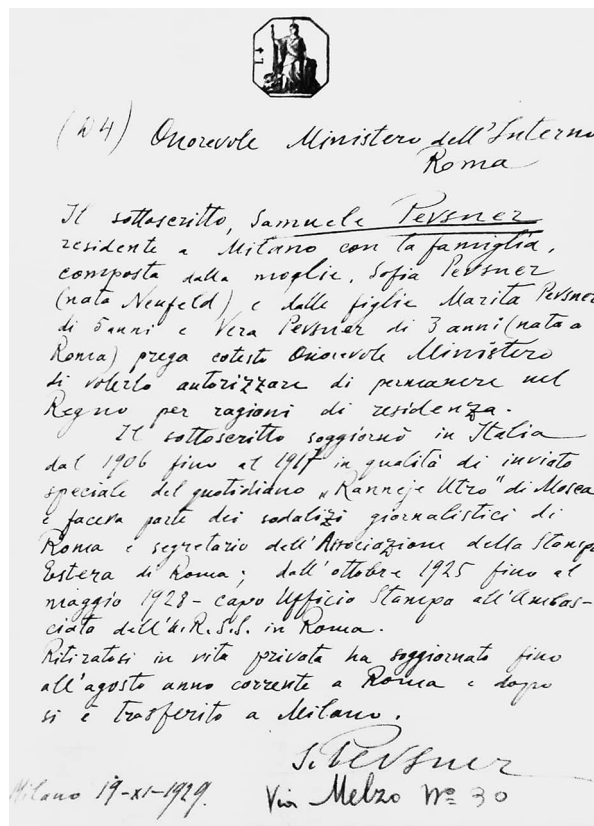 (W4) Onorevole Ministero dell'Interno
Roma
Il sottoscritto, Samuele Pevsner
residente a Milano con la famiglia,
composta dalla moglie, Sofia Pevsner
(nata Neufeld) e dalle figlie Marita Pevsner
di 5 anni e Vera Pevsner di 3 anni (nata a
Roma) prega cotesto Onorevole Ministero
di volerlo autorizzare di permanere nel
Regno per ragioni di residenza.
Il sottoscritto soggiornò in Italia
dal 1906 fino al 1917 in qualità di inviato
speciale del quotidiano „Ranneje Utro" di Mosca
e faceva parte dei sodalizi giornalistici di
Roma e segretario dell'Associazione della Stampa
Estera di Roma; dall'ottobre 1925 fino al
maggio 1928 - capo Ufficio Stampa all'Ambas-
ciata dell'U.R.S.S. in Roma.
Ritiratosi in vita privata ha soggiornato fino
all'agosto anno corrente a Roma e dopo
si è trasferito a Milano.
S. Pevsner
Milano 19-XI-1929. Via Melzo Nº 30